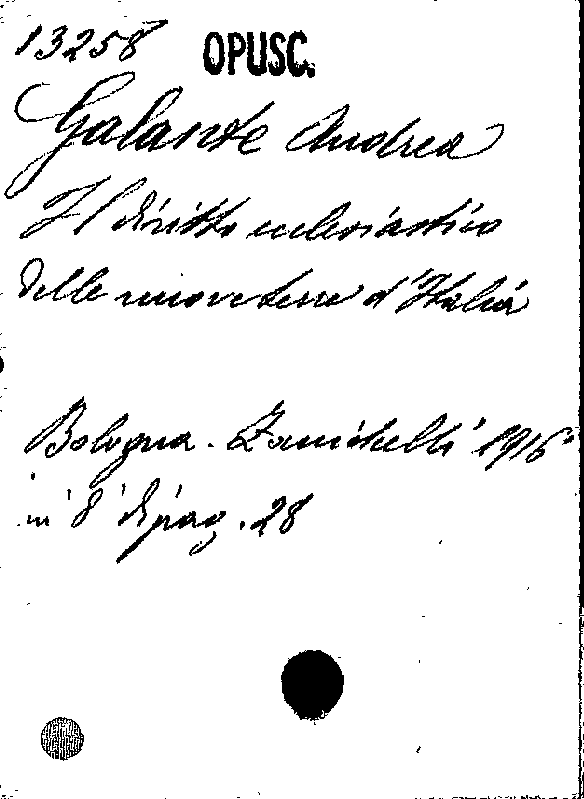 13258 OPUSC.
Galante Andrea
Il diritto ecclesiastico
delle nuove terre d'Italia
Bologna - Zanichelli 1916
in 8° di pag. 28